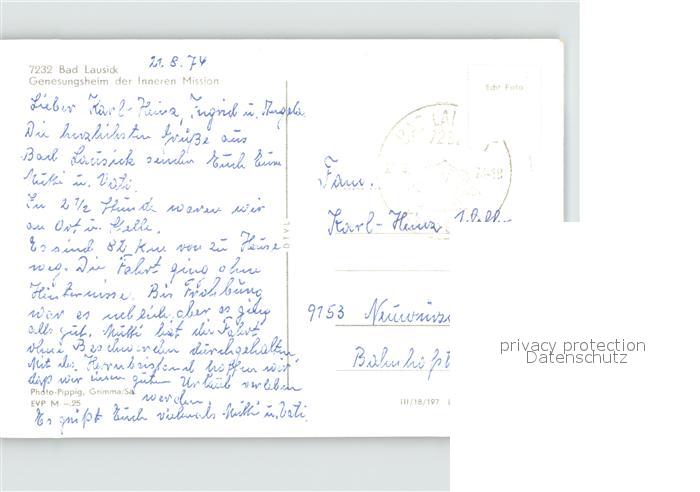 21.8.74
7232 Bad Lausick
Genesungsheim der Inneren Mission
Lieber Karl-Heinz, Ingrid u. Angela
Die herzlichsten Grüße aus
Bad Lausick senden Euch Eure
Mutti u. Vati.
In 2 1/2 Stunde waren wir
an Ort u. Stelle.
Es sind 82 km von zu Hause
weg. Die Fahrt ging ohne
Hinternisse. Bis Frohburg
war es neblich, aber es ging
alles gut. Mutti hat die Fahrt
ohne Beschwerden durchgehalten.
Mit der hoffen wir
daß wir einen guten Urlaub verleben
werden.
Es grüßt Euch vielmals Mutti u. Vati.
Photo-Pippig, Grimma/Sa.
EVP M -.25
DTVL
Echt Foto
7232
Fam.
Karl-Heinz
9153
Bahnhofst
III/18/197
privacy protection
Datenschutz